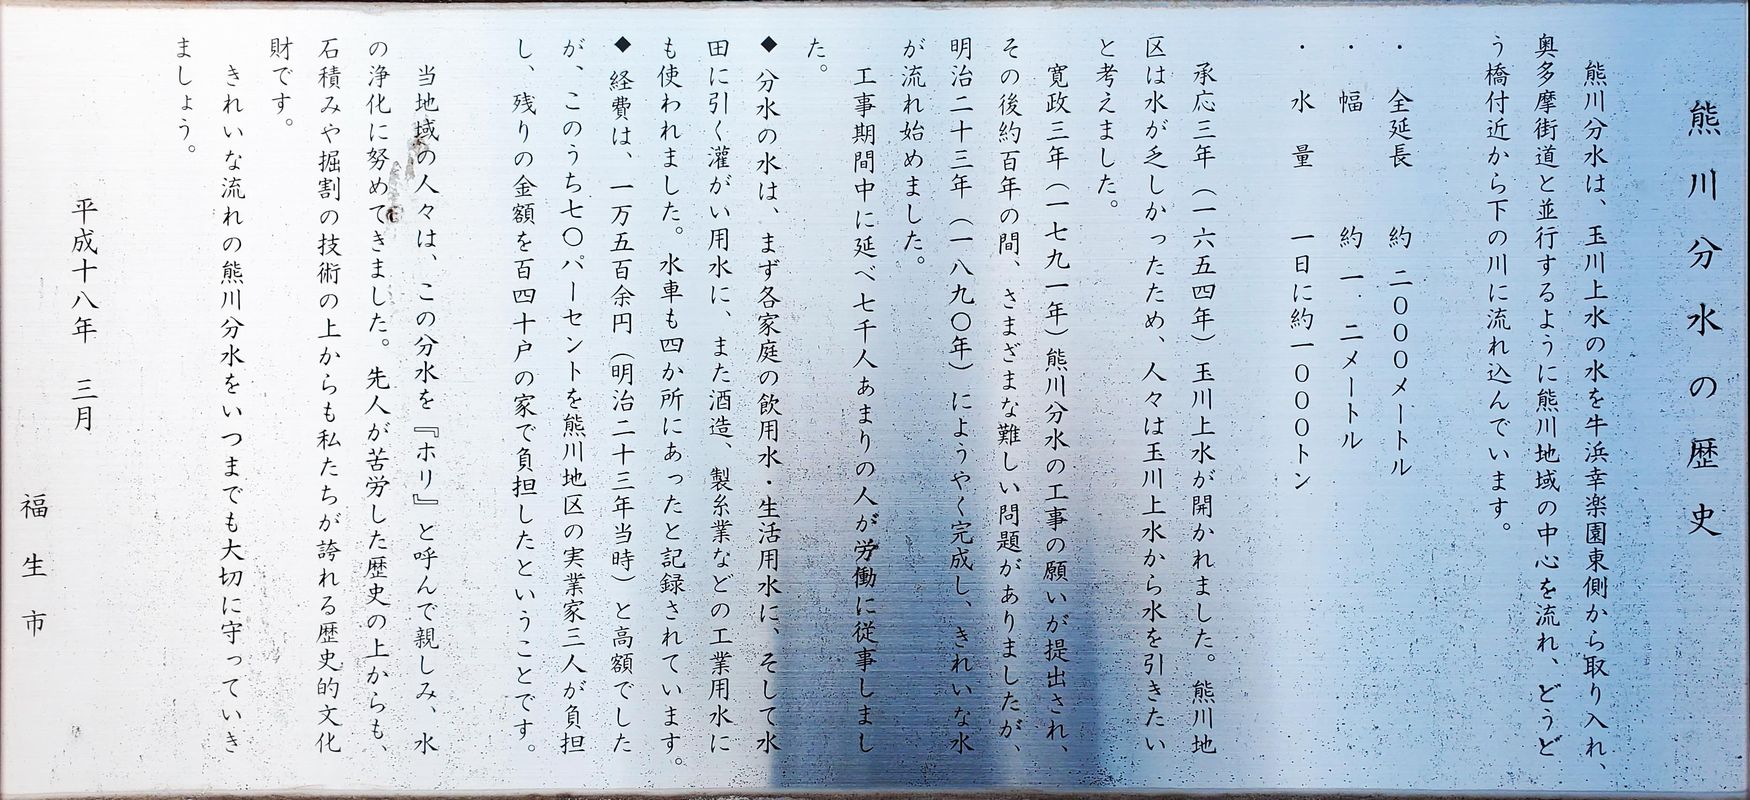 熊川分水の歴史
熊川分水は、玉川上水の水を牛浜幸楽園東側から取り入れ、
奥多摩街道と並行するように熊川地域の中心を流れ、どうど
う橋付近から下の川に流れ込んでいます。
・全延長 約 二〇〇〇メートル
・幅 約 一．二メートル
・水量 一日に約一〇〇〇トン
承応三年（一六五四年）玉川上水が開かれました。熊川地
区は水が乏しかったため、人々は玉川上水から水を引きたい
と考えました。
寛政三年（一七九一年）熊川分水の工事の願いが提出され、
その後約百年の間、さまざまな難しい問題がありましたが、
明治二十三年（一八九〇年）にようやく完成し、きれいな水
が流れ始めました。
工事期間中に延べ七千人あまりの人が労働に従事しまし
た。
◆分水の水は、まず各家庭の飲用水・生活用水に、そして水
田に引く灌がい用水に、また酒造、製糸業などの工業用水に
も使われました。水車も四か所にあったと記録されています。
◆経費は、一万五百余円（明治二十三年当時）と高額でした
が、このうち七〇パーセントを熊川地区の実業家三人が負担
し、残りの金額を百四十戸の家で負担したということです。
当地域の人々は、この分水を『ホリ』と呼んで親しみ、水
の浄化に努めてきました。先人が苦労した歴史の上からも、
石積みや掘割の技術の上からも私たちが誇れる歴史的文化
財です。
きれいな流れの熊川分水をいつまでも大切に守っていき
ましょう。
平成十八年 三月
福生市